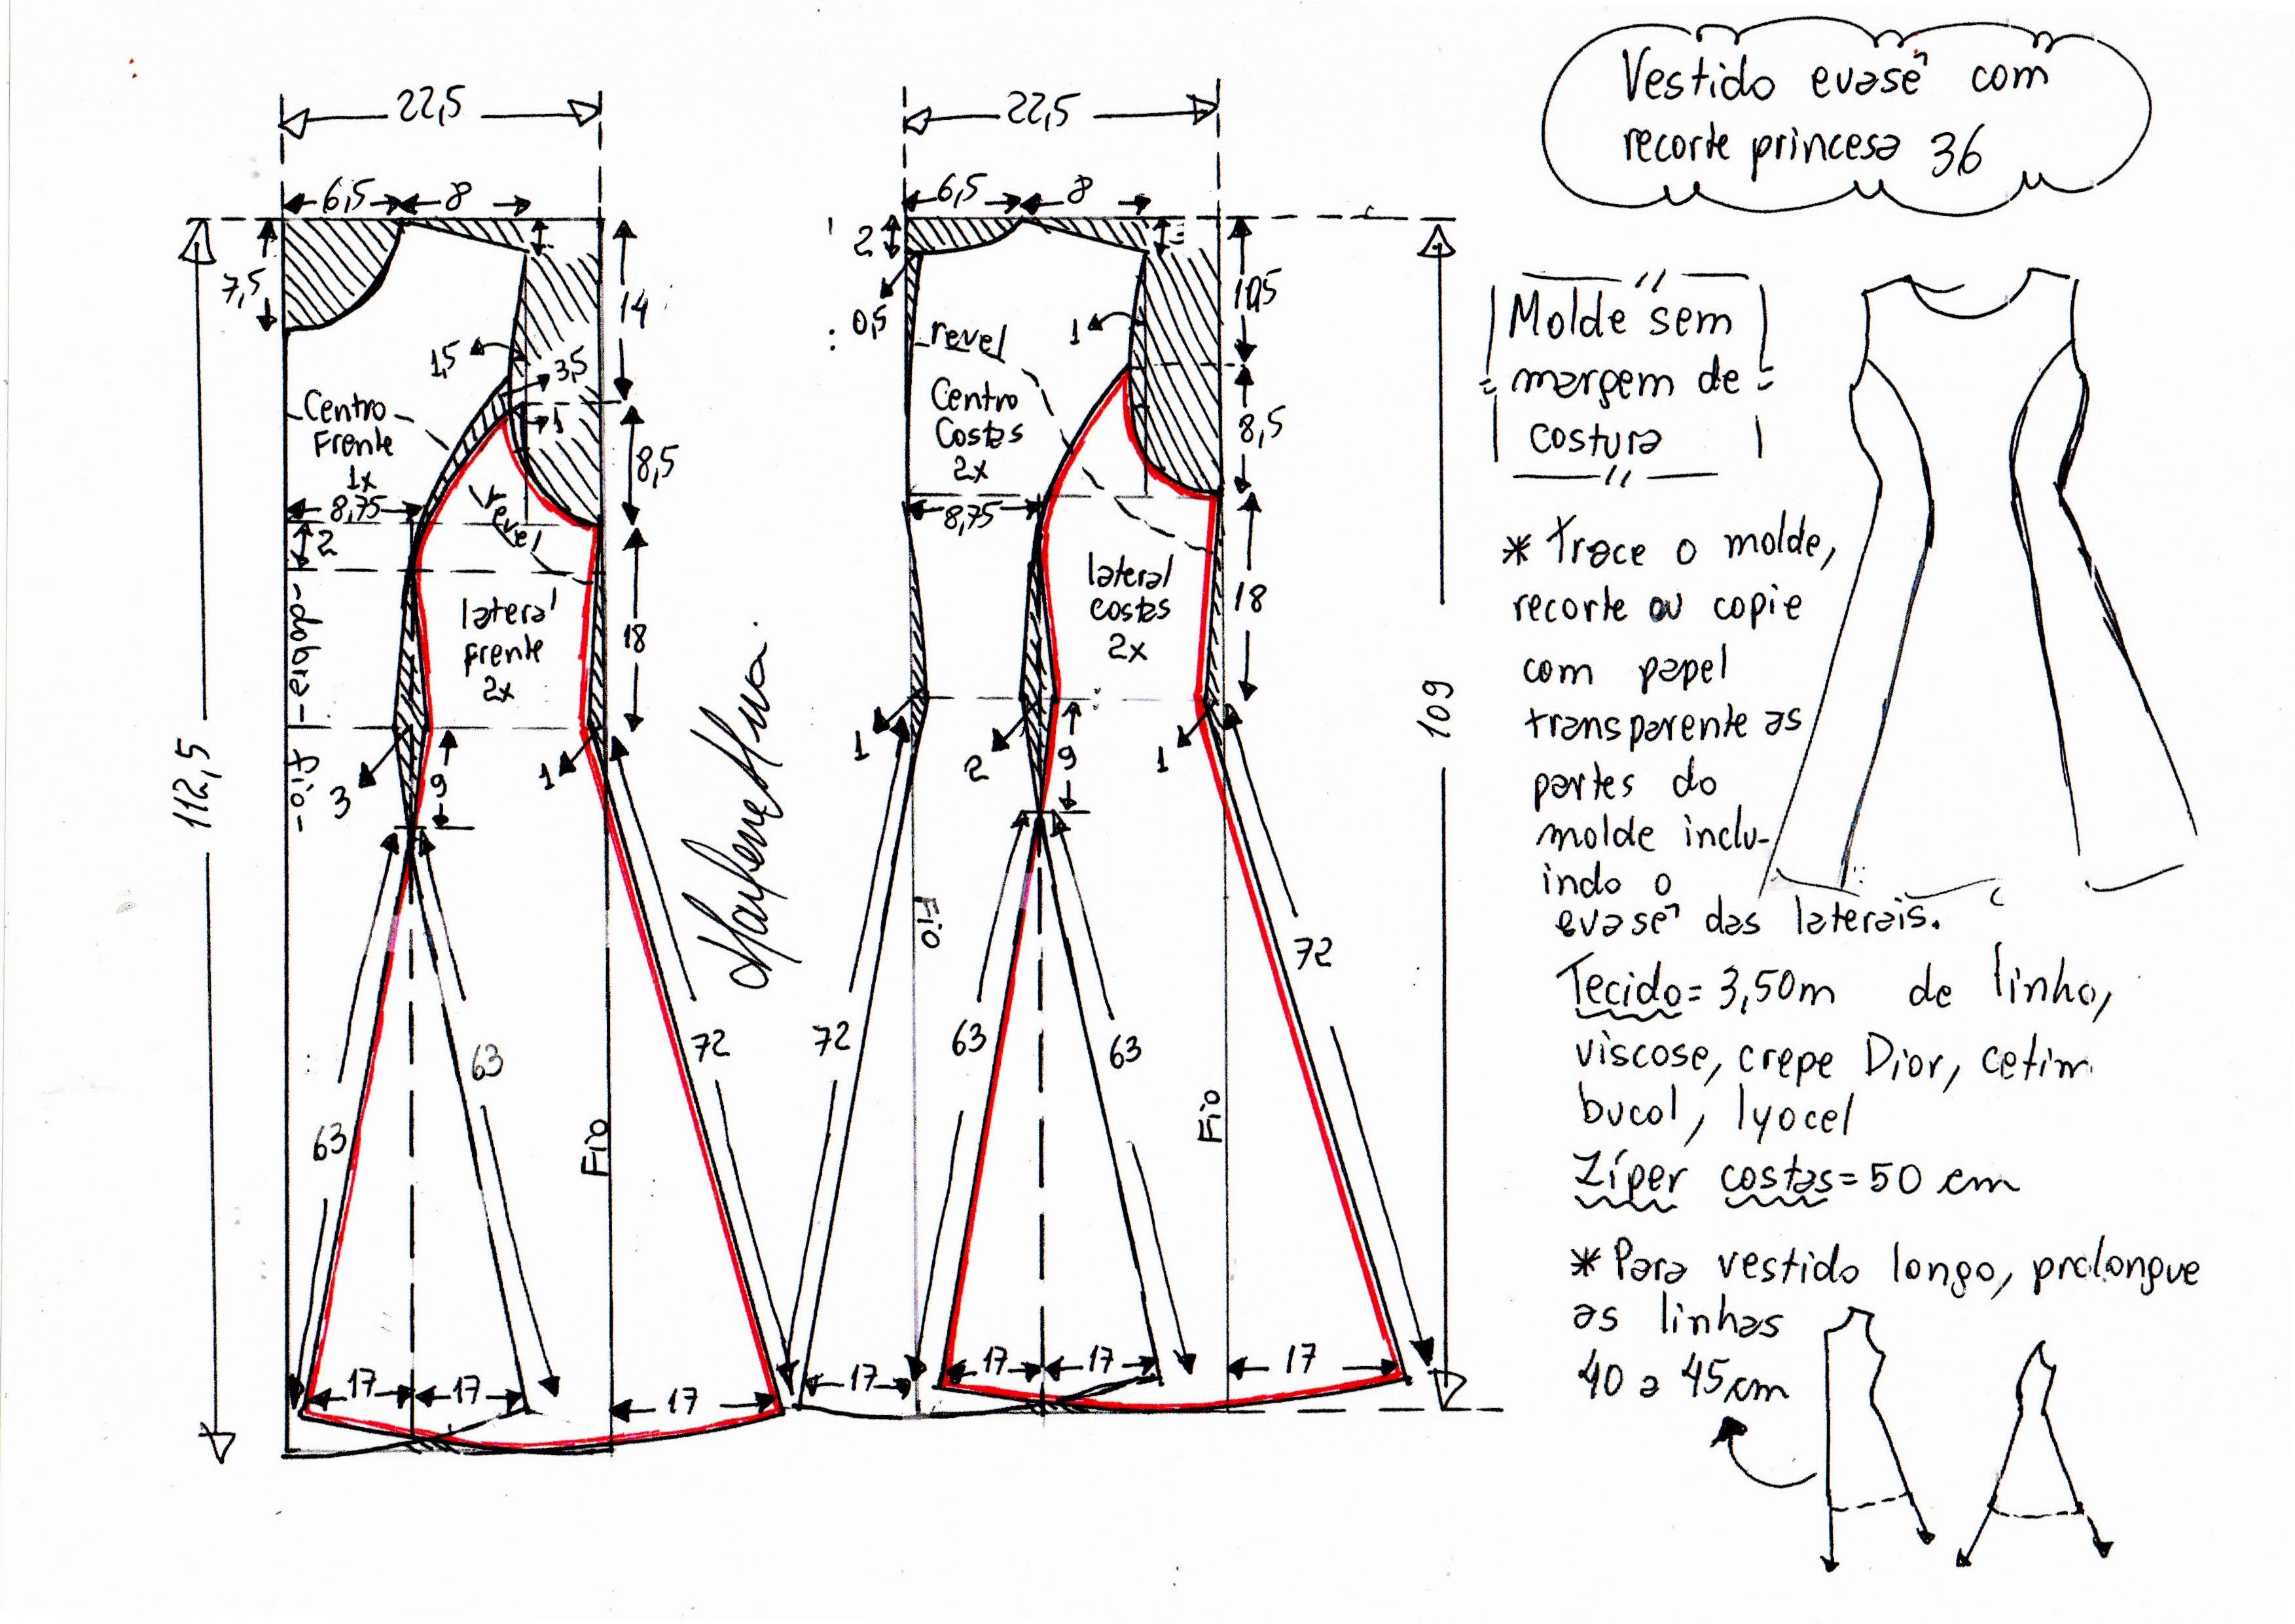 Vestido evasê com
recorte princesa 36
22,5
6,5
8
7,5
14
1,5
3,5
1
Centro
Frente
1x
8,5
8,75
2
revel
-dobra-
lateral
frente
2x
18
fio-
3
9
1
112,5
63
63
72
Fio
17
17
17
22,5
6,5
8
2
0,5
revel
1
8,5
Centro
Costas
2x
8,75
lateral
costas
2x
18
1
2
9
1
109
Fio
72
63
63
72
Fio
17
17
17
17
Molde sem
margem de
costura
* Trace o molde,
recorte ou copie
com papel
transparente as
partes do
molde inclu-
indo o
evasê das laterais.
Tecido = 3,50m de linho,
viscose, crepe Dior, cetim
bucol, lyocel
Zíper costas = 50 cm
* Para vestido longo, prolongue
as linhas
40 a 45cm